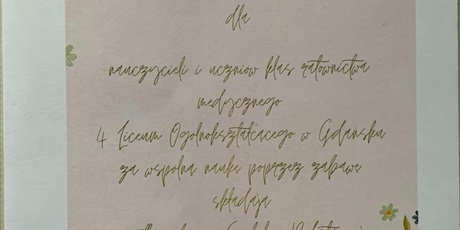 dla
nauczycieli i uczniow klas ratownictwa
medycznego
4 Liceum Ogolnoksztalcacego w Gdansku
za wspolna nauke poprzez zabawe
skladaja